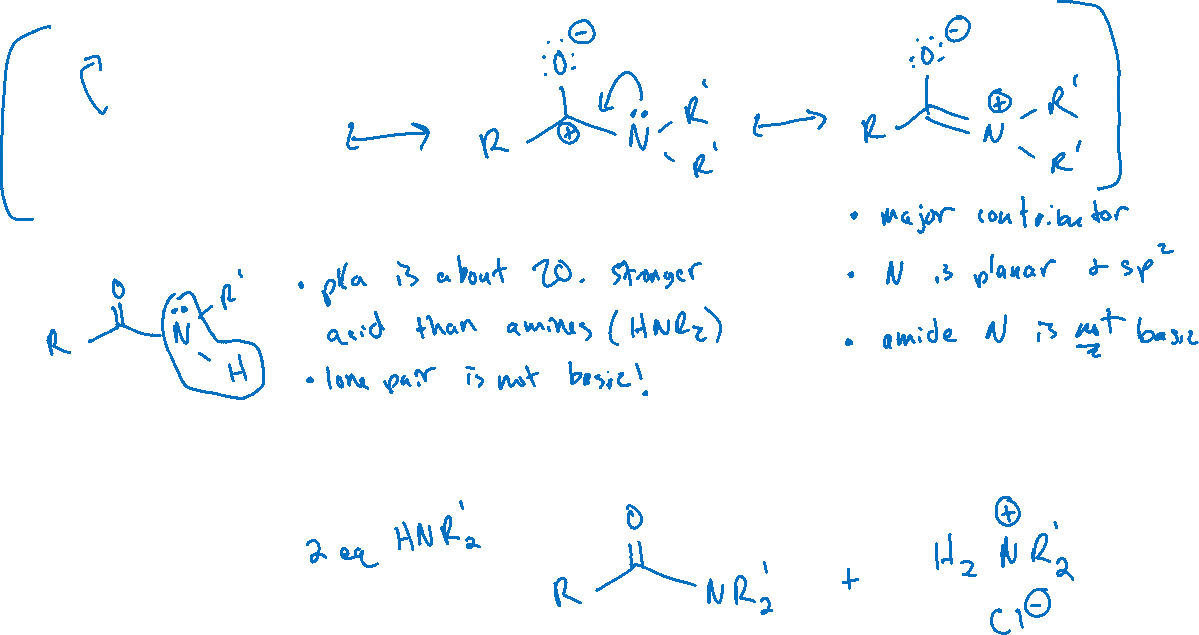 :Ö: ⊖
R ⊕ N̈ R' R'
:Ö: ⊖
R N ⊕ R' R'
• major contributor
• N is planar & sp²
• amide N is not basic
O
R N̈ R' H
• pKa is about 20. stronger
acid than amines (HNR₂)
• lone pair is not basic!
2 eq HNR₂'
O
R NR₂' + H₂N⊕R₂'
Cl⊖